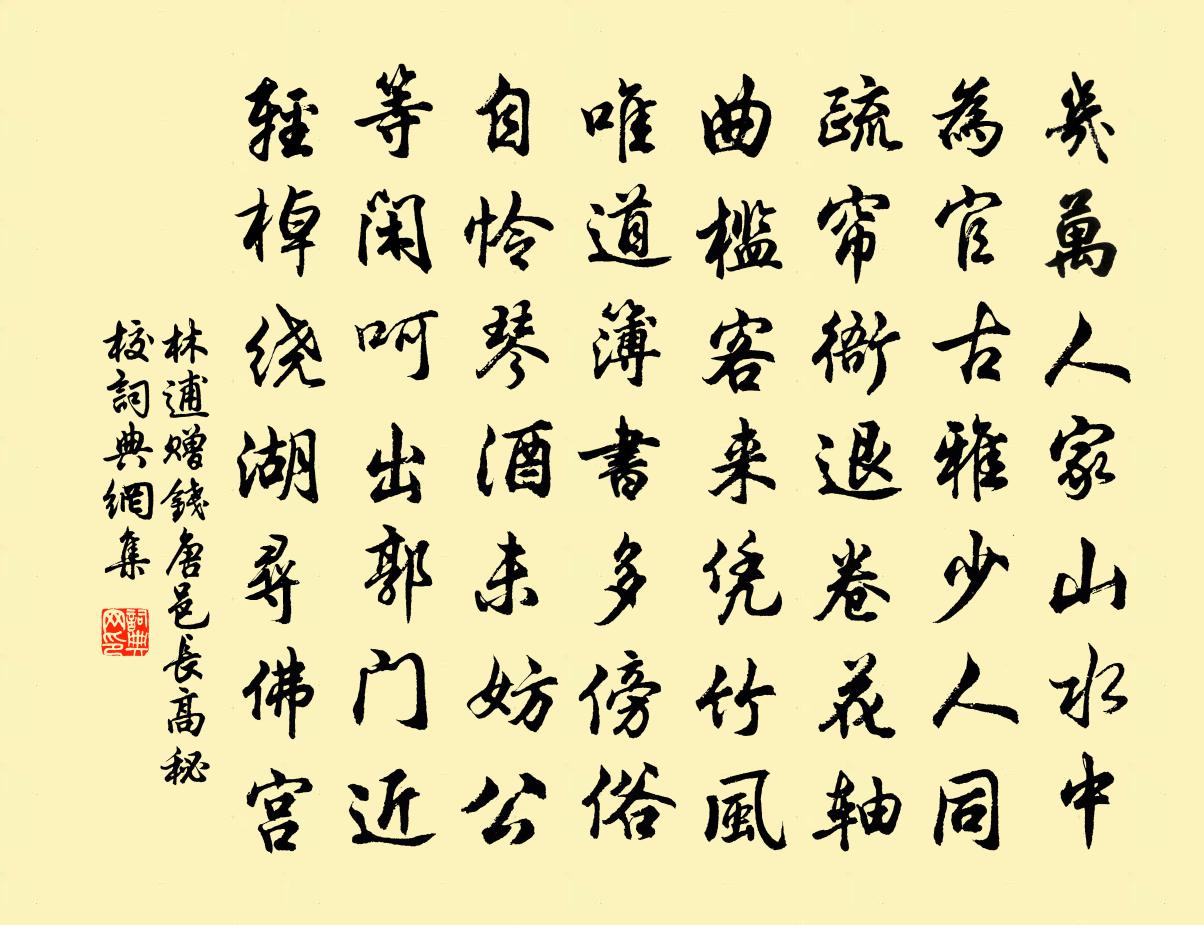 幾萬人家山水中
為官古雅少人同
疏帘衙退卷花軸
曲檻客来凭竹風
唯道簿書多傍俗
自怜琴酒未妨公
等閑呵出郭门近
輕棹绕湖尋佛宫
林逋赠錢唐邑長高秘
校詞典網集
詞典网印